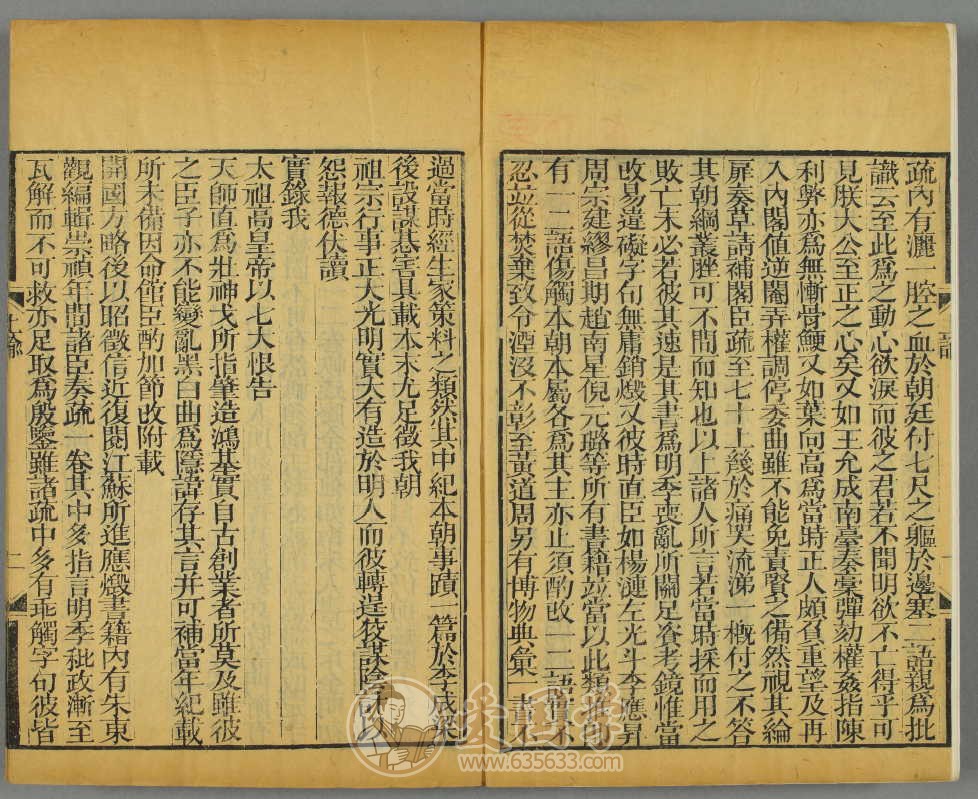 疏內有灑一腔之血於朝廷付七尺之軀於邊塞二語親爲批
識云至此爲之動心欲淚而彼之君若不聞明欲不亡得乎可
見朕大公至正之心矣又如王允成南臺奏藁彈劾權姦指陳
利弊亦爲無慚骨鯁又如葉向高爲當時正人頗負重望及再
入內閣値逆閹弄權調停委曲雖不能免責賢之備然視其綸
扉奏草請補閣臣疏至七十上幾於痛哭流涕一槪付之不答
其朝綱叢脞可不問而知也以上諸人所言若當時採而用之
敗亡未必若彼其速是其書爲明季喪亂所關足資考鏡惟當
改易違礙字句無庸銷燬又彼時直臣如楊漣左光斗李應昇
周宗建繆昌期趙南星倪元璐等所有書籍竝當以此類推卽
有一二語傷觸本朝本屬各爲其主亦止須酌改一二語實不
忍竝從焚棄致令湮沒不彰至黃道周另有博物典彙一書不
過當時經生家策料之類然其中紀本朝事蹟一篇於李成梁
後設謀惎害具載本末尤足徵我朝
祖宗行事正大光明實大有造於明人而彼轉逞狡謀陰計以
怨報德伏讀
實錄我
太祖高皇帝以七大恨告
天師直爲壯神戈所指肇造鴻基實自古創業者所莫及雖彼
之臣子亦不能變亂黑白曲爲隱諱存其言并可補當年紀載
所未備因命館臣酌加節改附載
開國方略後以昭徵信近復閱江蘇所進應燬書籍內有朱東
觀編輯崇禎年間諸臣奏疏一卷其中多指言明季秕政漸至
瓦解而不可救亦足取爲殷鑒雖諸疏中多有乖觸字句彼皆
上諭
二
愛国学
www.635633.com